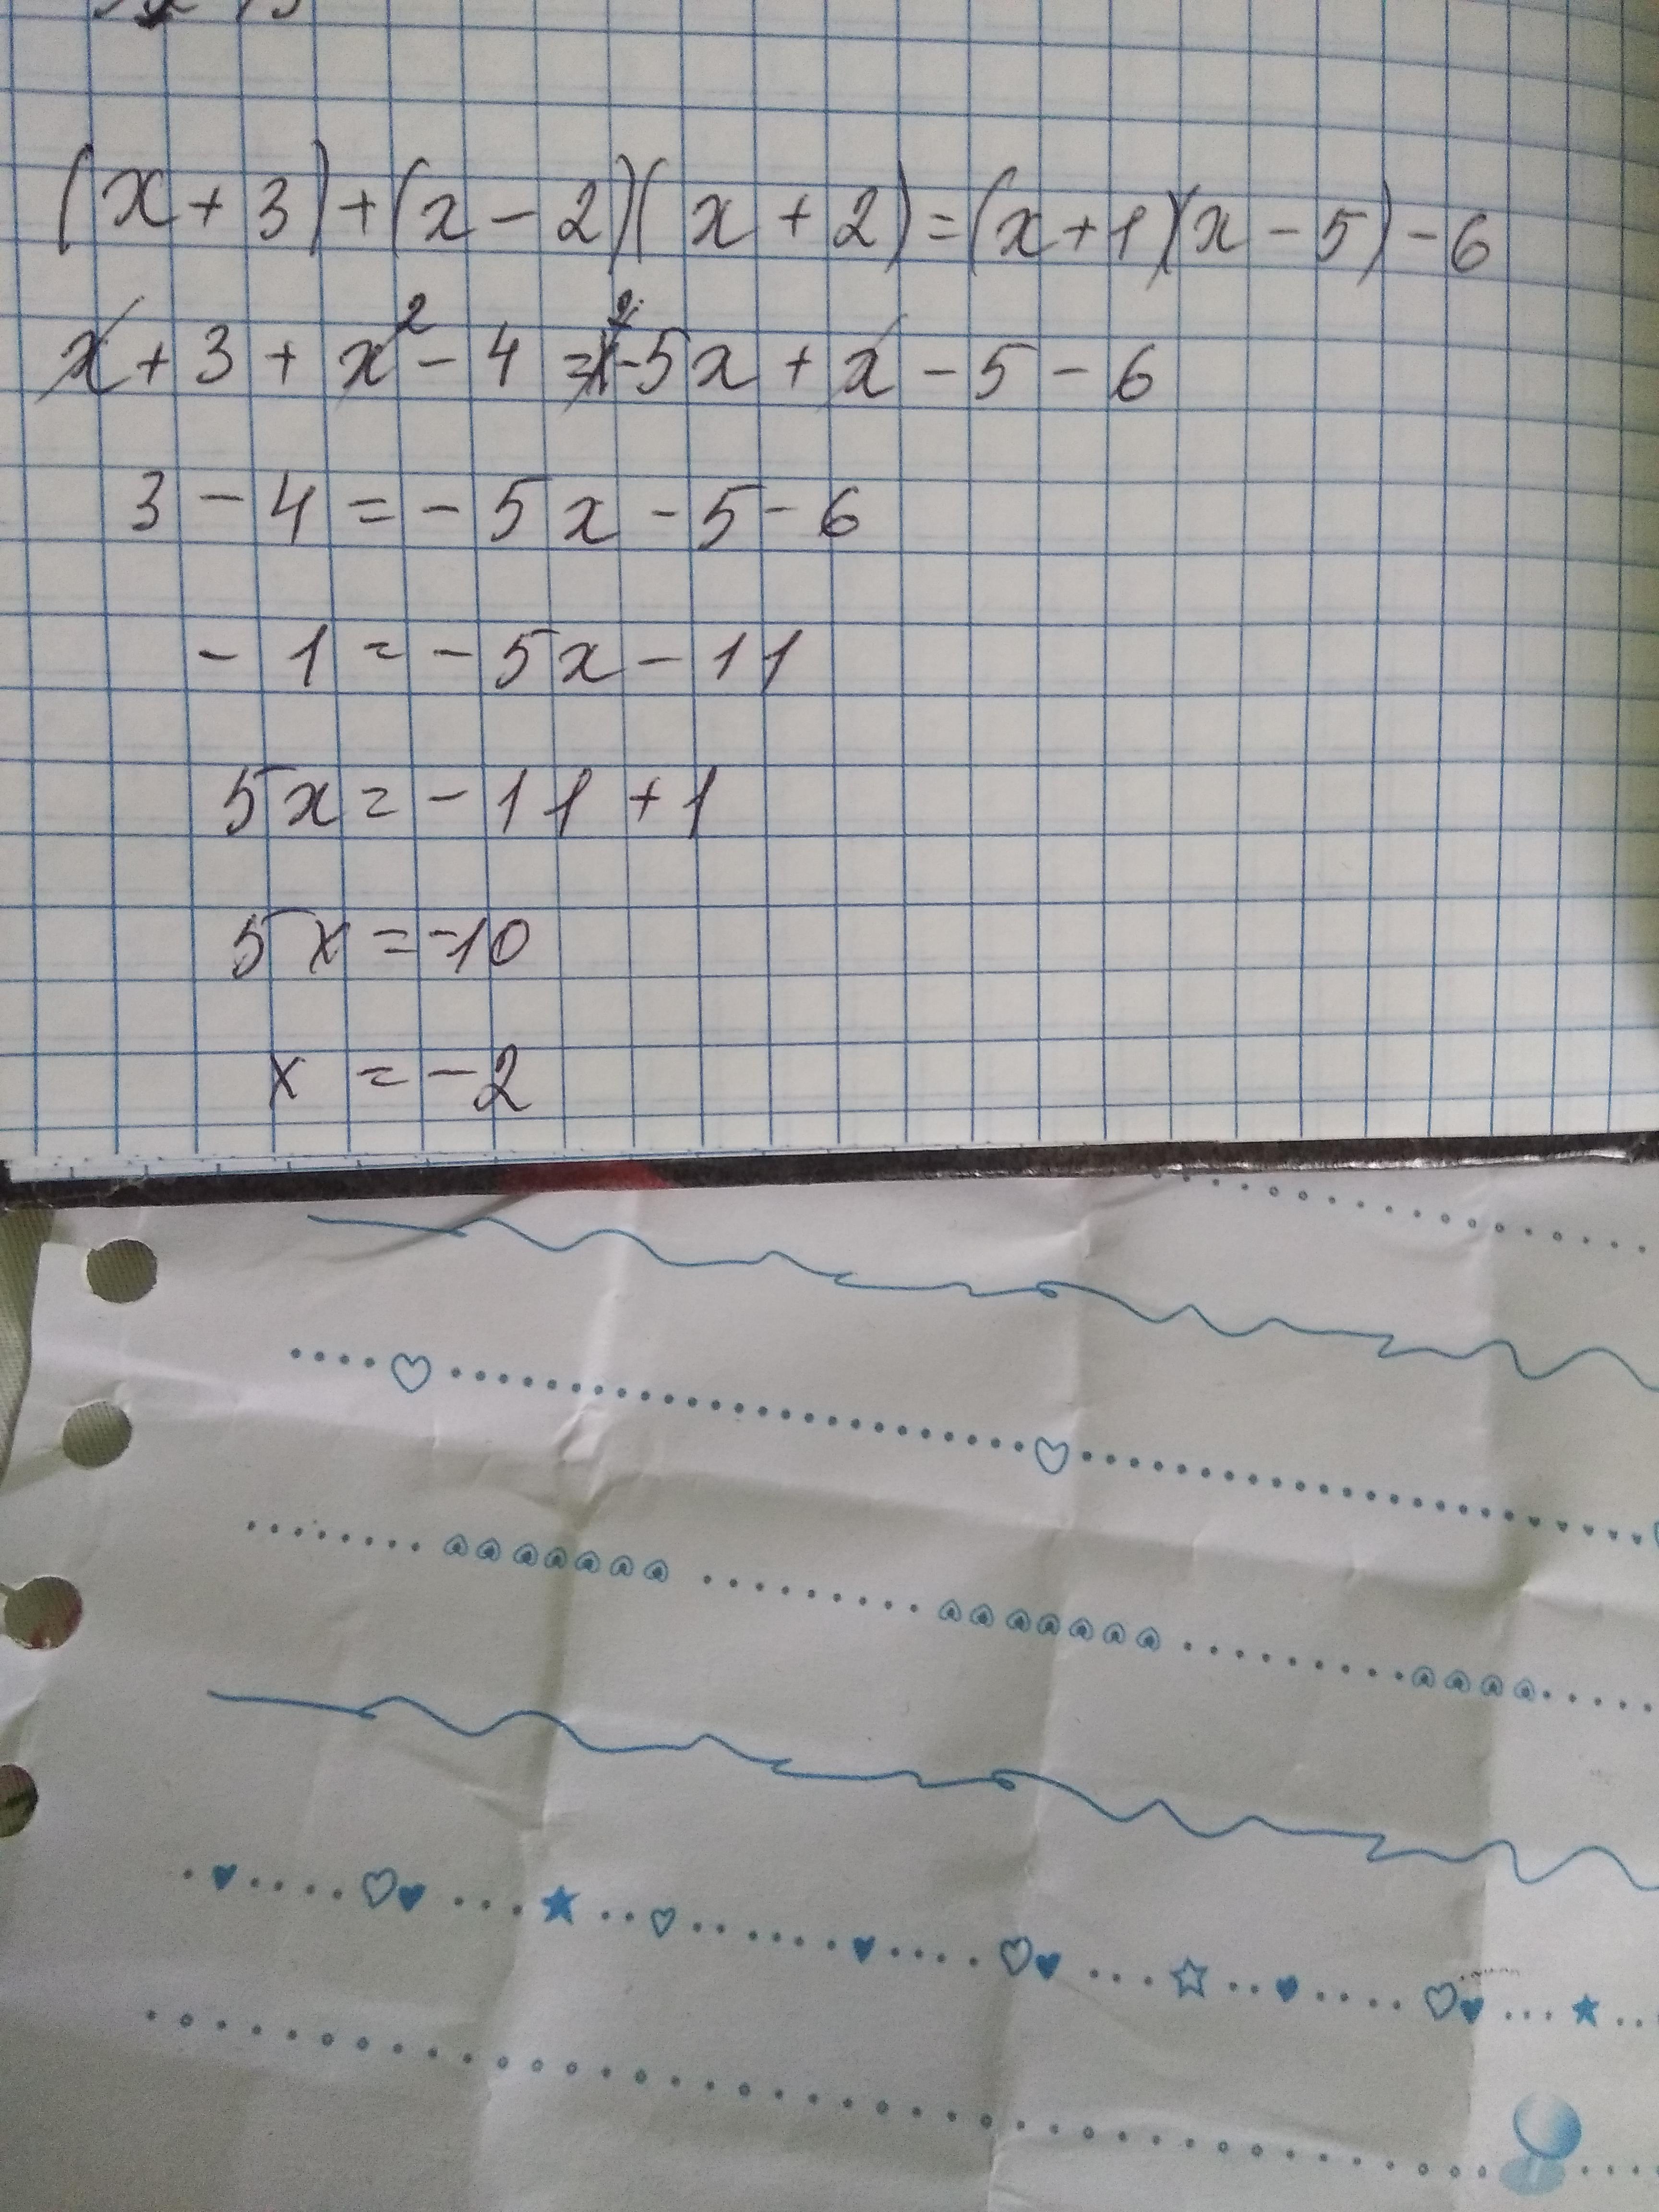 (x + 3) + (x - 2)(x + 2) = (x + 1)(x - 5) - 6
x + 3 + x² - 4 = x² - 5x + x - 5 - 6
3 - 4 = - 5x - 5 - 6
- 1 = - 5x - 11
5x = - 11 + 1
5x = -10
x = -2